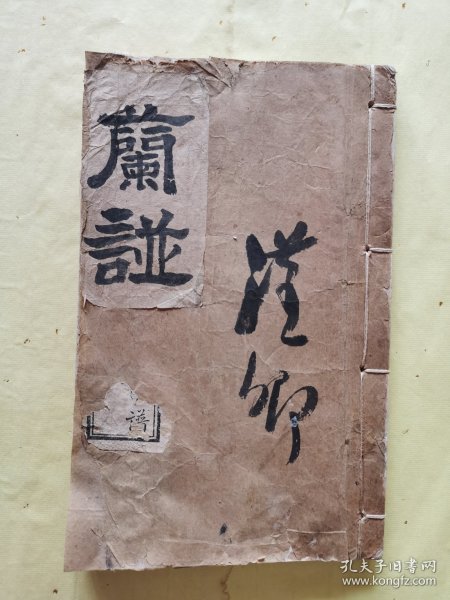 蘭諩
漢卿
譜
孔夫子旧书网
www.kongfz.com